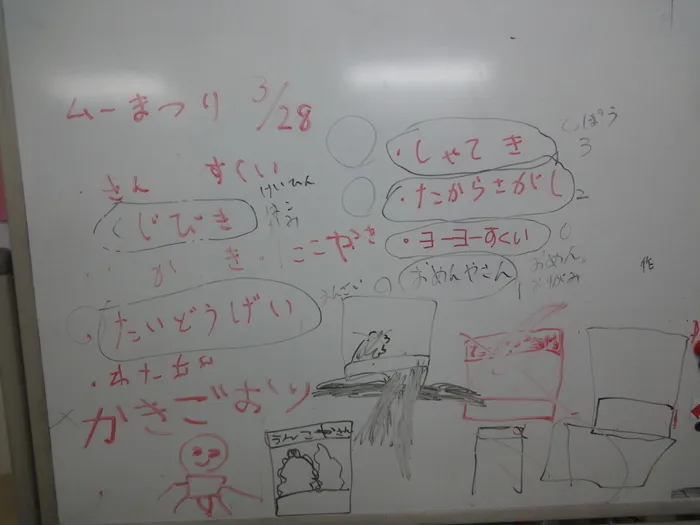 ムーまつり 3/28
・きん すくい
けいひん
くじびき
がき
・ここやき
・たいどうげい
・わたがし
かきごおり
てっぽう
3
・しゃてき
・たからさがし
2
・ヨーヨーすくい
0
おめんやさん
1
おめん
おりがみ
作
うんこやさん